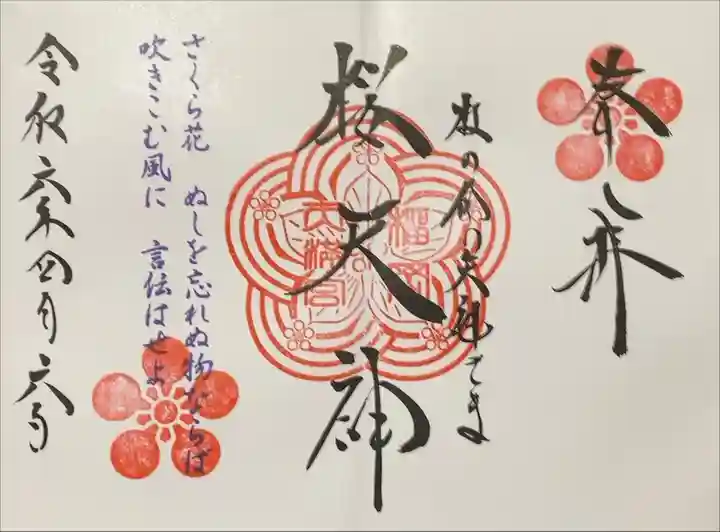 奉拝
杜の都の天神さま
桜天神
榴岡
天満宮
さくら花 ぬしを忘れぬ物ならば
吹きこむ風に 言伝はせよ
令和六年四月六日